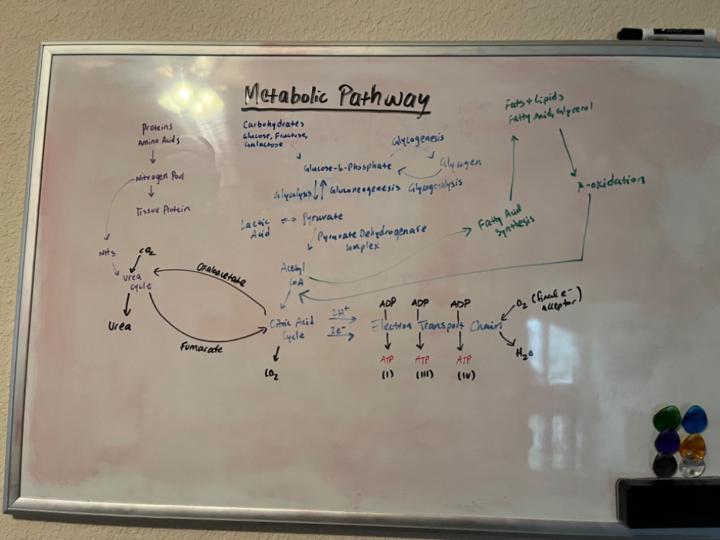 Metabolic Pathway
Proteins
Amino Acids
Nitrogen Pool
Tissue Protein
NH3
CO2
Urea
Cycle
Urea
Oxaloacetate
Fumarate
Carbohydrates
Glucose, Fructose,
Galactose
Glucose-6-Phosphate
Glycogenesis
Glycogen
Glycogenolysis
Glycolysis
Gluconeogenesis
Lactic
Acid
Pyruvate
Pyruvate Dehydrogenase
Complex
Acetyl
CoA
Citric Acid
Cycle
CO2
2H+
2e-
Fats + Lipids
Fatty Acids, Glycerol
β-oxidation
Fatty Acid
Synthesis
ADP ADP ADP
Electron Transport Chain
ATP ATP ATP
(I) (III) (IV)
O2 (final e-
acceptor)
H2O